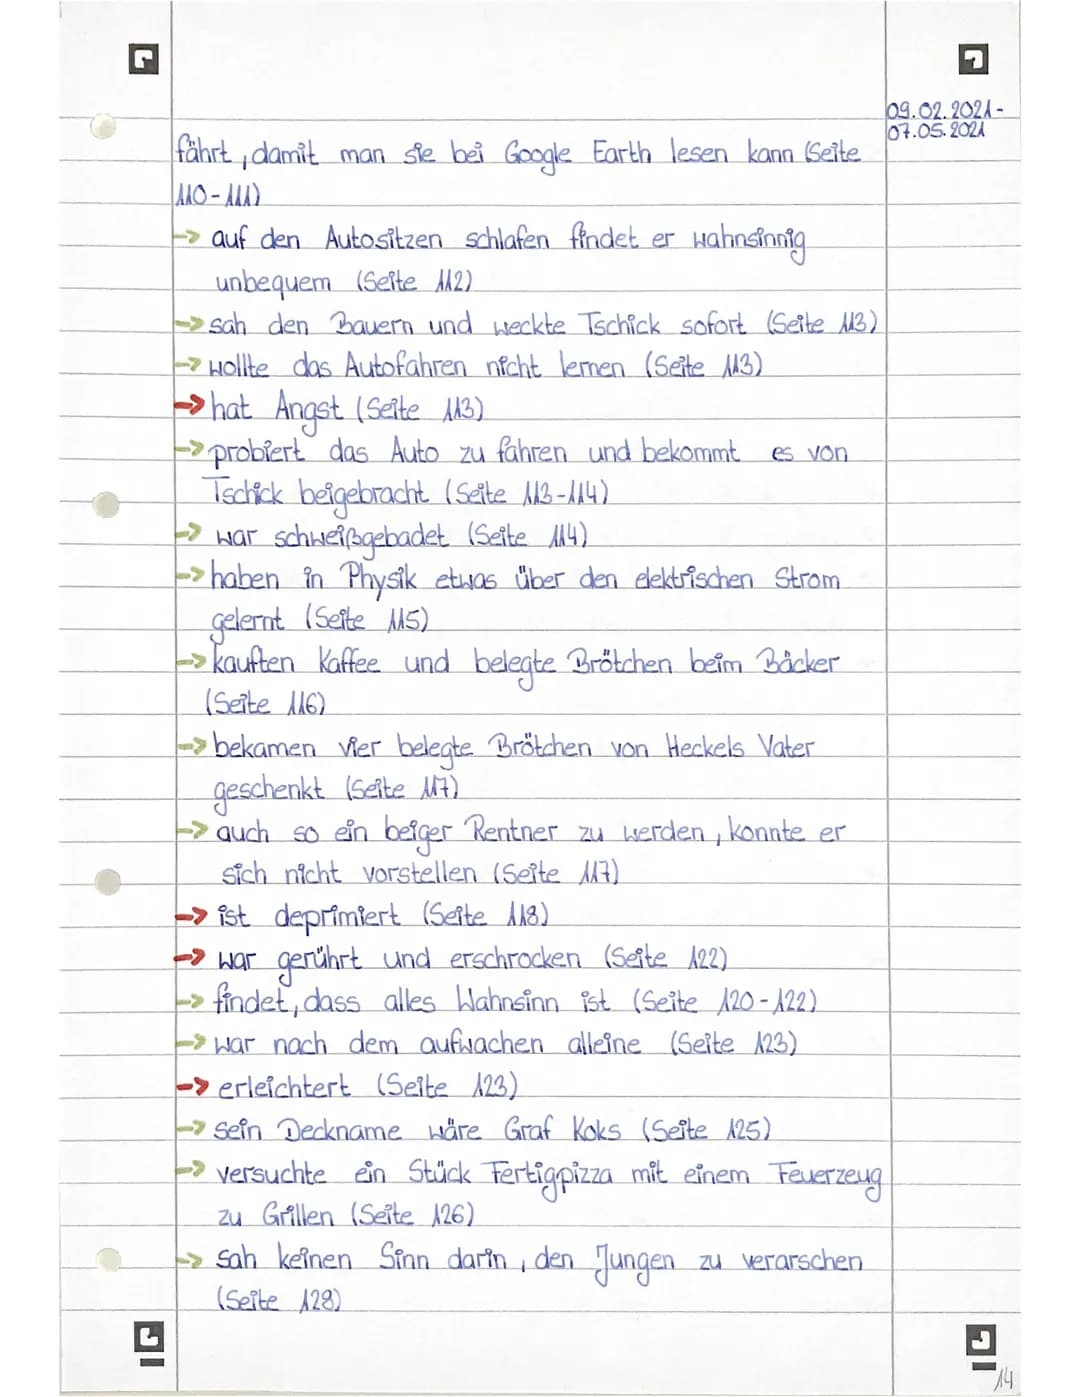 09.02.2021-
07.05.2021
fährt, damit man sie bei Google Earth lesen kann (Seite
110-111)
-> auf den Autositzen schlafen findet er wahnsinnig
unbequem (Seite 112)
-> sah den Bauern und weckte Tschick sofort (Seite 113)
-> wollte das Autofahren nicht lernen (Seite 113)
-> hat Angst (Seite 113)
-> probiert das Auto zu fahren und bekommt es von
Tschick beigebracht (Seite 113-114)
-> war schweißgebadet (Seite 114)
-> haben in Physik etwas über den elektrischen Strom
gelernt (Seite 115)
-> kauften Kaffee und belegte Brötchen beim Bäcker
(Seite 116)
-> bekamen vier belegte Brötchen von Heckels Vater
geschenkt (Seite 117)
-> auch so ein beiger Rentner zu werden, konnte er
sich nicht vorstellen (Seite 117)
-> ist deprimiert (Seite 118)
-> war gerührt und erschrocken (Seite 122)
-> findet, dass alles Wahnsinn ist (Seite 120-122)
-> war nach dem aufwachen alleine (Seite 123)
-> erleichtert (Seite 123)
-> sein Deckname wäre Graf Koks (Seite 125)
-> versuchte ein Stück Fertigpizza mit einem Feuerzeug
zu Grillen (Seite 126)
-> sah keinen Sinn darin, den Jungen zu verarschen
(Seite 128)
14